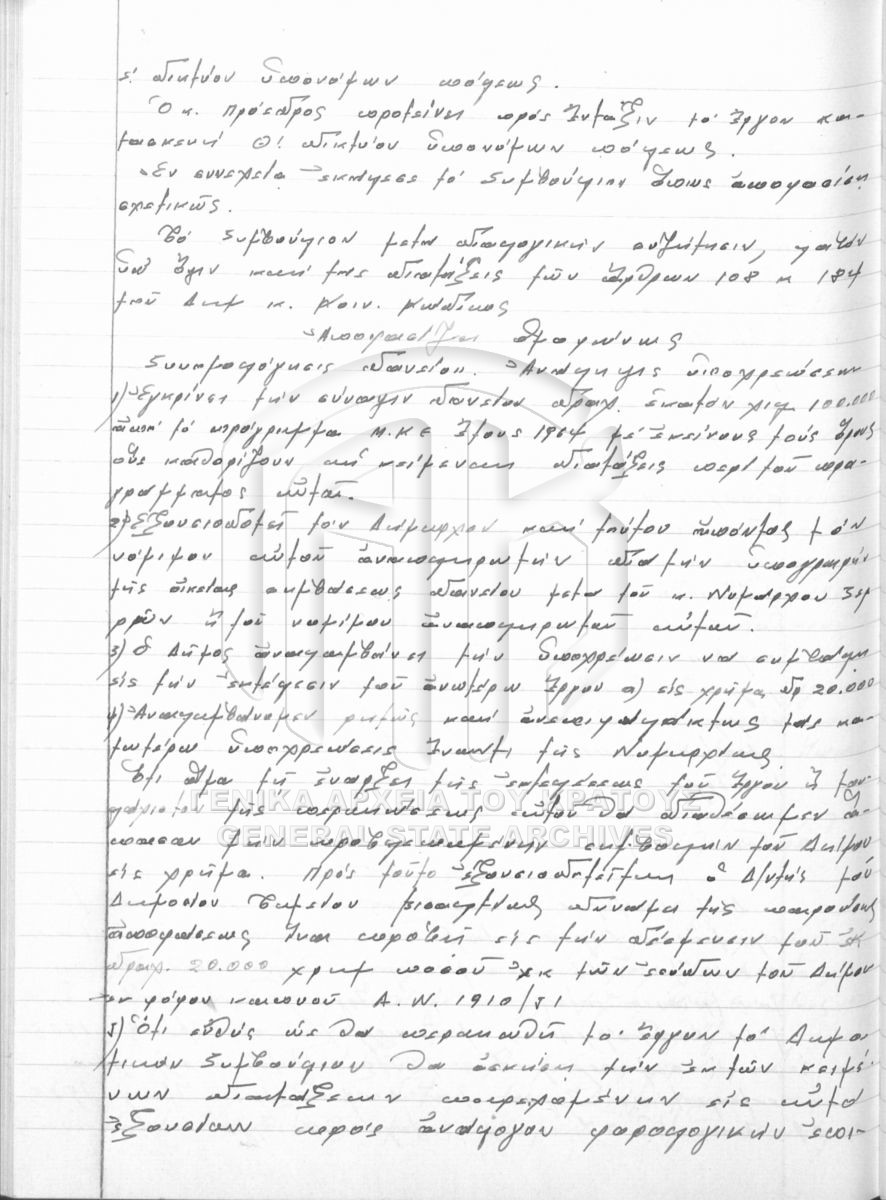 ε' δικτύου ὑπονόμων πόλεως.
Ὁ κ. Πρόεδρος προτείνει πρός ἔνταξιν τό ἔργον κα-
τασκευή Θ' δικτύου ὑπονόμων πόλεως.
Ἐν συνεχεία ἐκάλεσε τό Συμβούλιον ὅπως ἀποφασίση
σχετικῶς.
Τό Συμβούλιον μετά διαλογικήν συζήτησιν, λαβόν
ὑπ' ὄψιν καί τάς διατάξεις τῶν ἄρθρων 108 κ 184
τοῦ Δημ κ. Κοιν. Κώδικος
Ἀποφασίζει ὁμοφώνως
Συνομολόγησις δανείου. Ἀνάληψις ὑποχρεώσεων
1) Ἐγκρίνει τήν σύναψιν δανείου δραχ. ἑκατόν χιλ 100.000
ἀπό τό πρόγραμμα Μ.Κ.Ε ἔτους 1964 μέ ἐκείνους τούς ὅρους
οὕς καθορίζουν αἱ κείμεναι διατάξεις περί τοῦ προ-
γράμματος αὐτοῦ.
2) Ἐξουσιοδοτεῖ τόν Δήμαρχον καί τούτου ἀπόντος τόν
νόμιμον αὐτοῦ ἀναπληρωτήν διά τήν ὑπογραφήν
τῆς οἰκείας συμβάσεως δανείου μετά τοῦ κ. Νομάρχου Σερ
ρῶν ἤ τοῦ νομίμου ἀναπληρωτοῦ αὐτοῦ.
3) Ὁ Δῆμος ἀναλαμβάνει τήν ὑποχρέωσιν νά συμβάλη
εἰς τήν ἐκτέλεσιν τοῦ ἀνωτέρω ἔργου α) εἰς χρῆμα δρ 20.000
4) Ἀναλαμβάνομεν ρητῶς καί ἀνεπιφυλάκτως τάς κα-
τωτέρω ὑποχρεώσεις ἔναντι τῆς Νομαρχίας
Ὅτι ἅμα τῇ ἐνάρξει τῆς ἐκτελέσεως τοῦ ἔργου ἤ του-
λάχιστον τῆς περατώσεως αὐτοῦ θά διαθέσωμεν ἅ-
πασαν τήν προβλεπομένην συμβολήν τοῦ Δήμου
εἰς χρῆμα. Πρός τοῦτο ἐξουσιοδοτεῖται ὁ Δ/ντής τοῦ
Δημοσίου Ταμείου Νιγρίτης δυνάμει τῆς παρούσης
ἀποφάσεως ἵνα προβῇ εἰς τήν δέσμευσιν τοῦ ἐκ
δραχ. 20.000 χρημ ποσοῦ ἐκ τῶν ἐσόδων τοῦ Δήμου
ἐκ φόρου καπνοῦ Α.Ν. 1910/51
5) Ὅτι εὐθύς ὡς θά περατωθῆ τό ἔργον τό Δημο
τικόν Συμβούλιον θά ἀσκήση τήν ἐκ τῶν κειμέ-
νων διατάξεων παρεχομένην εἰς αὐτό
ἐξουσίαν πρός ἀνάλογον φορολογικήν ἐπι-
ΓΕΝΙΚΑ ΑΡΧΕΙΑ ΤΟΥ ΚΡΑΤΟΥΣ
GENERAL STATE ARCHIVES